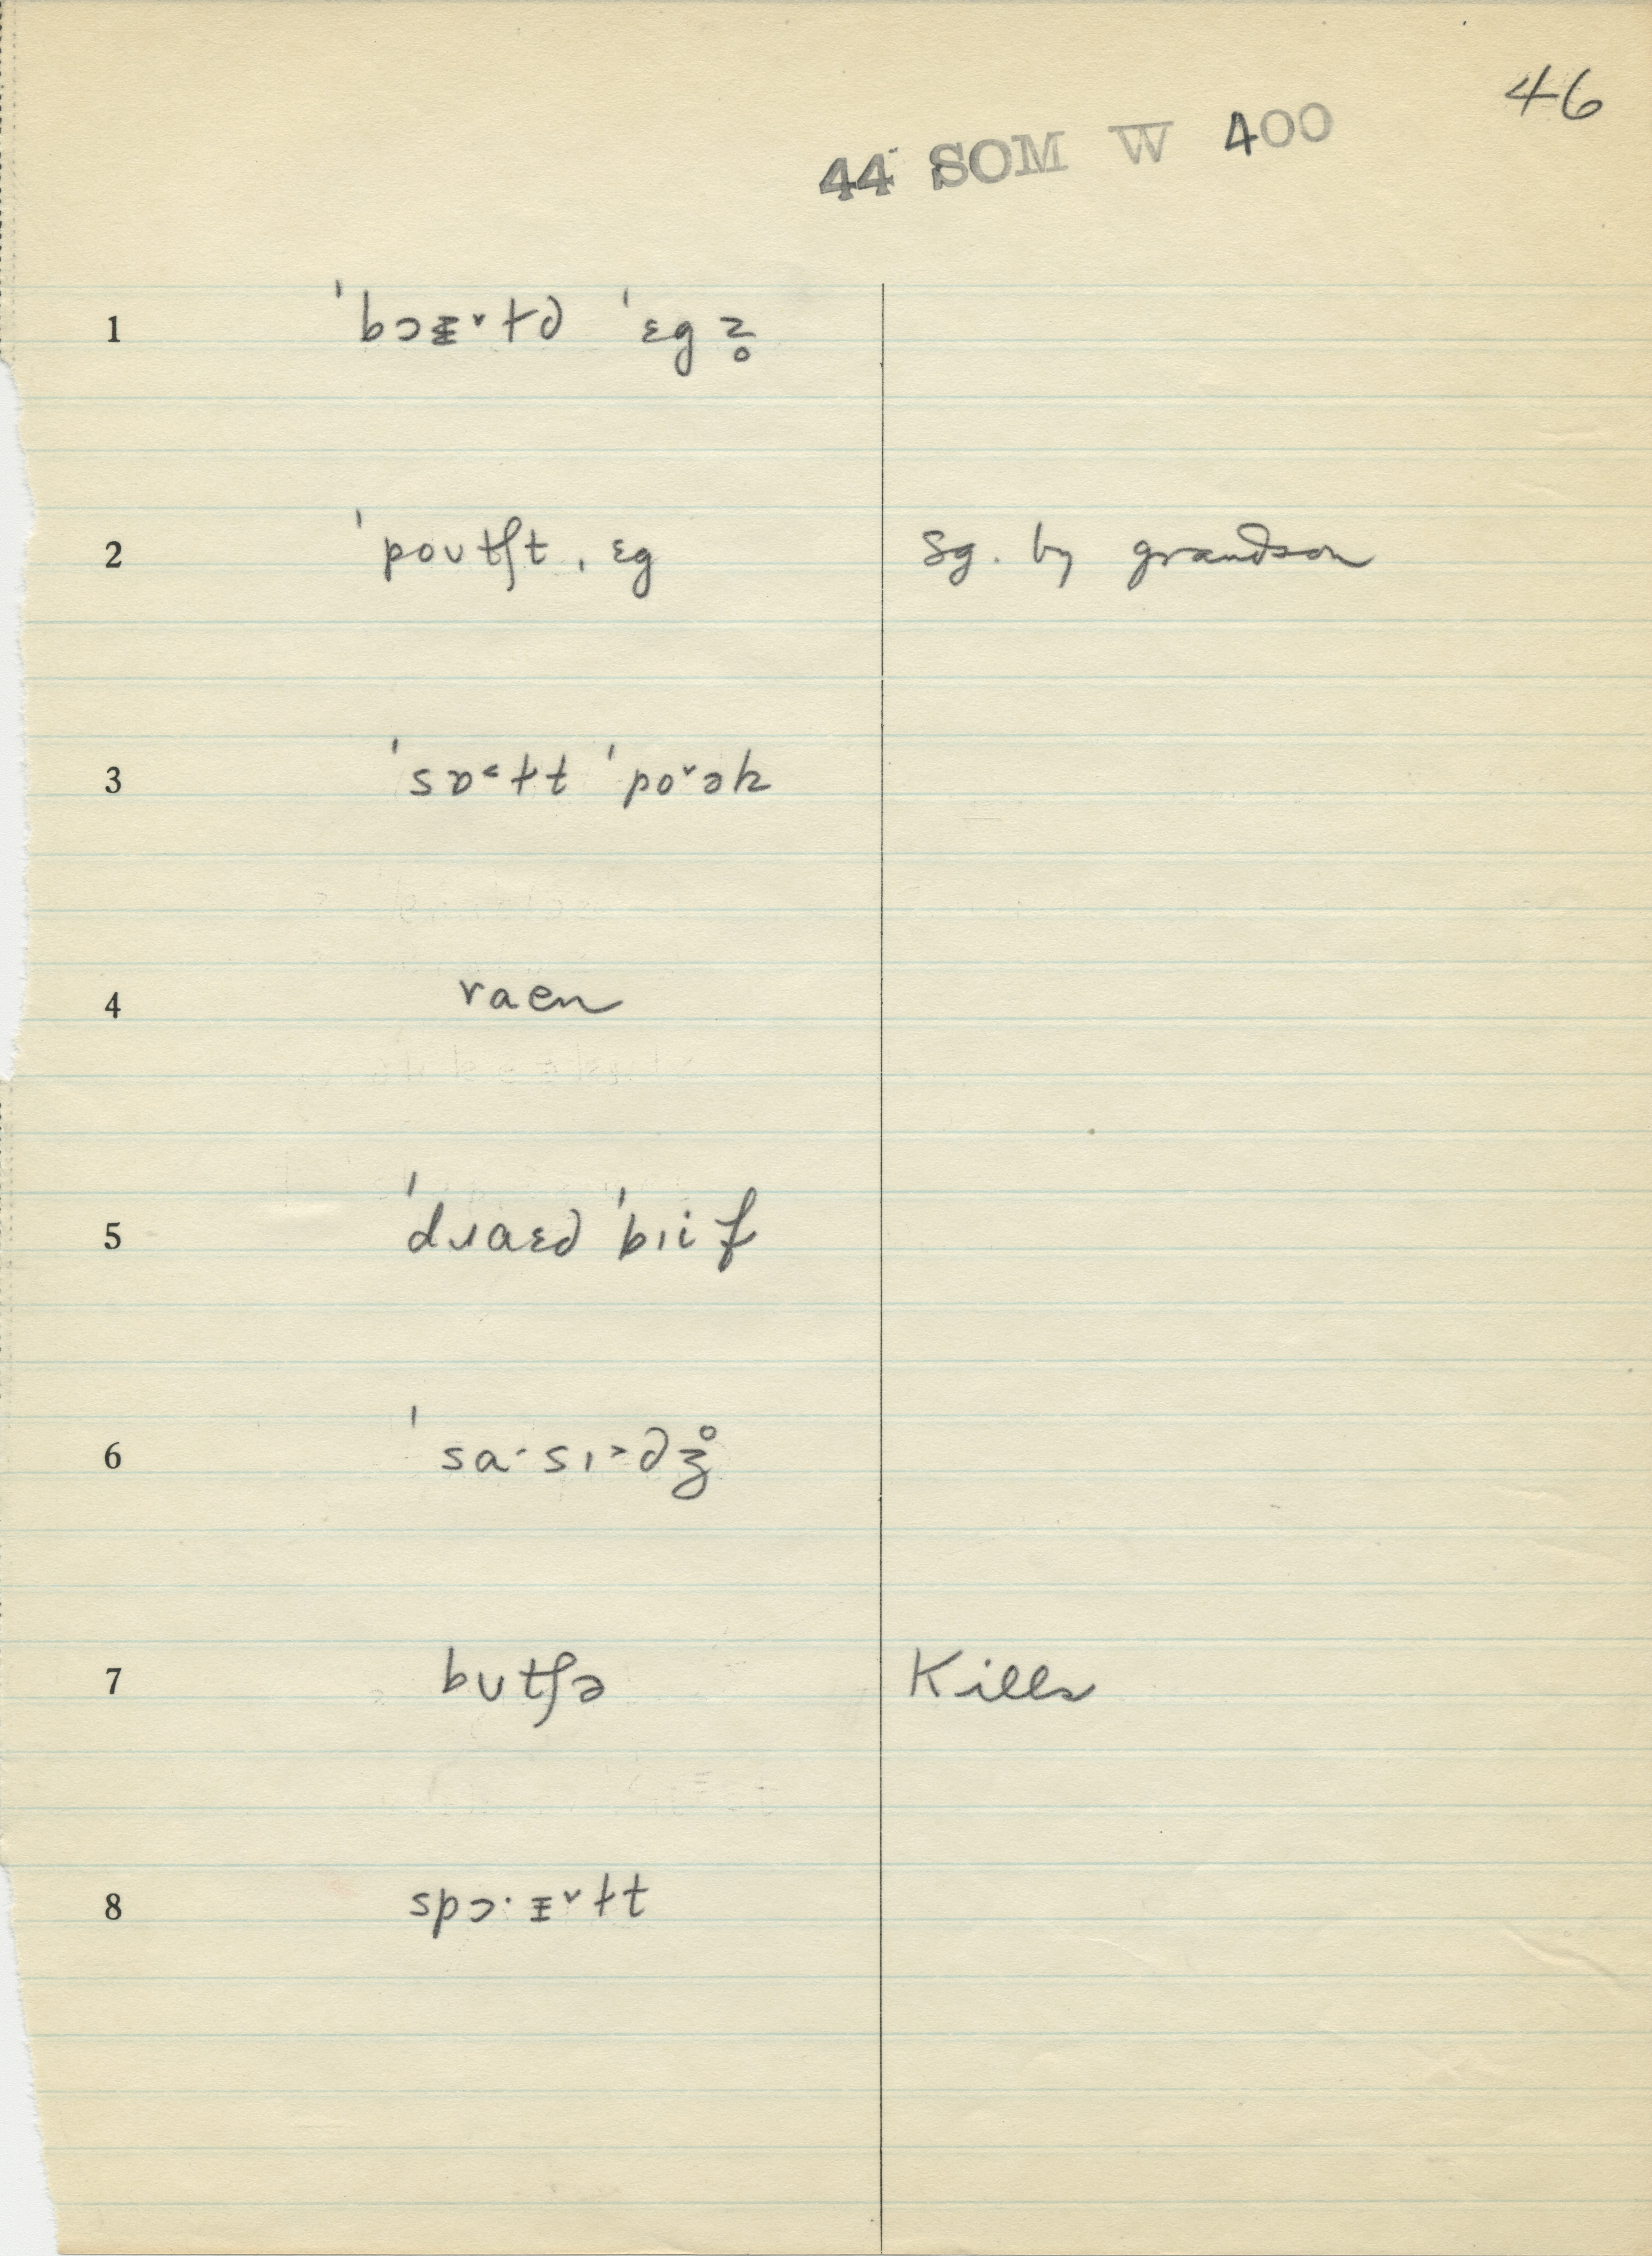 46
44 SOM W 400
1 ˈbɔᵻ˅ɫd ˈɛgz̥
2 ˈpoʊtʃt ˌɛg Sg. by grandson
3 ˈsɒ˂ɫt ˈpo˅ək
4 raen
5 ˈdɹaɛd ˈbɪif
6 ˈsa·sɪ˃dʒ̊
7 bʊtʃə Kills
8 spɔ·ᵻ˅ɫt